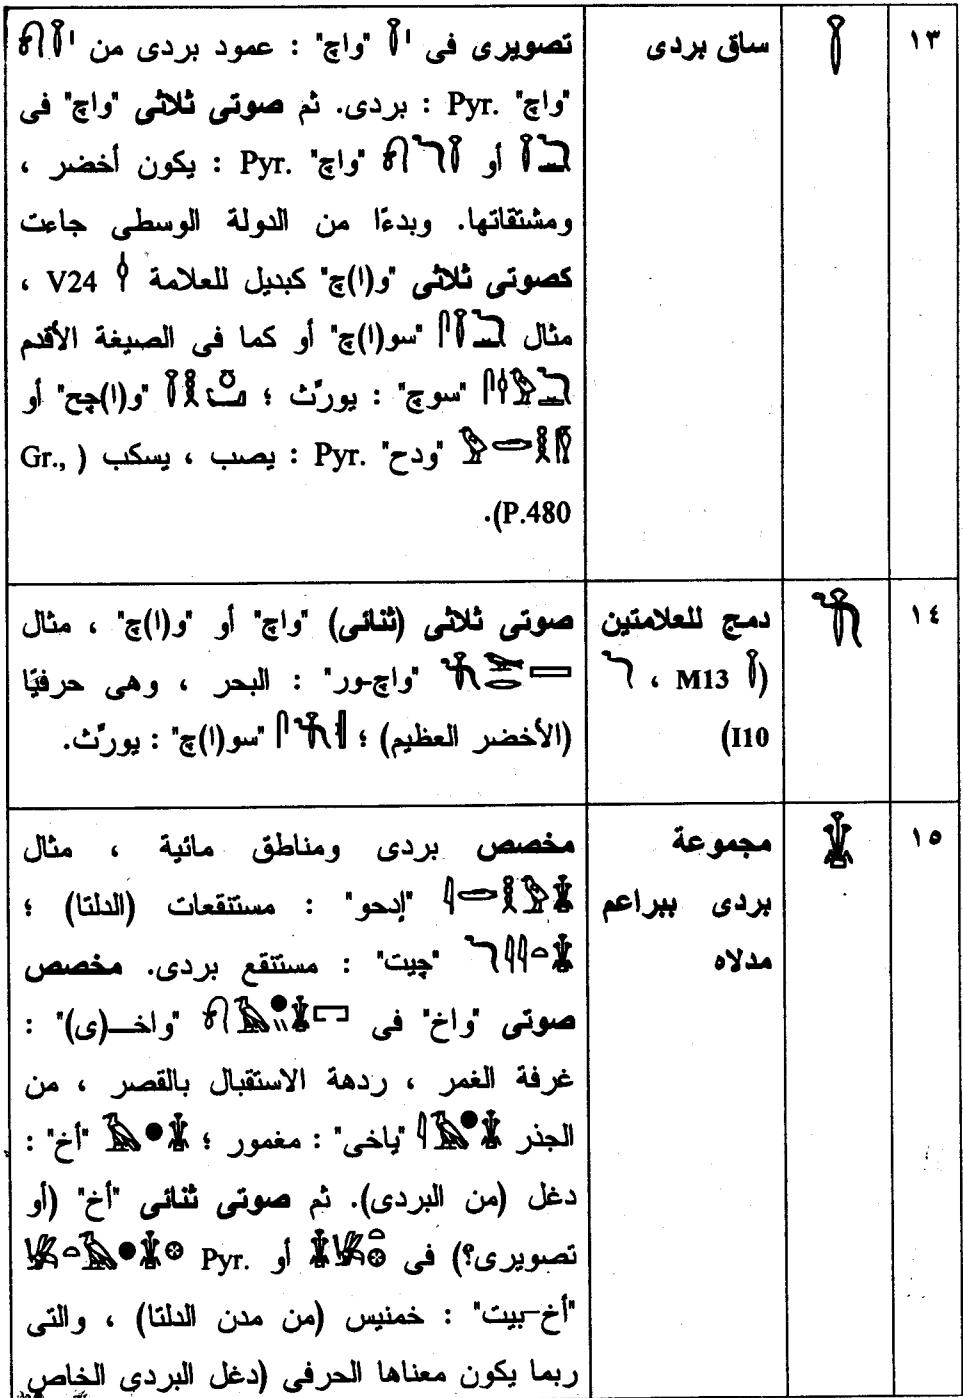 ١٣
ساق بردى
تصويرى فى "واچ" : عمود بردى من
"واچ" Pyr. : بردى. ثم صوتى ثلاثى "واچ" فى
أو "واچ" Pyr. : يكون أخضر ،
ومشتقاتها. وبدءًا من الدولة الوسطى جاءت
كصوتى ثلاثى "و(ا)چ" كبديل للعلامة V24 ،
مثال "سو(ا)چ" أو كما فى الصيغة الأقدم
"سوچ" : يورِّث ؛ "و(ا)چح" أو
"ودح" Pyr. : يصب ، يسكب (Gr.,
P.480).
١٤
دمج للعلامتين
(M13 ،
I10)
صوتى ثلاثى (ثنائى) "واچ" أو "و(ا)چ" ، مثال
"واچ-ور" : البحر ، وهى حرفيًا
(الأخضر العظيم) ؛ "سو(ا)چ" : يورِّث.
١٥
مجموعة
بردى ببراعم
مدلاه
مخصص بردى ومناطق مائية ، مثال
"إدحو" : مستنقعات (الدلتا) ؛
"چيت" : مستنقع بردى. مخصص
صوتى "واخ" فى "واخـ(ى)" :
غرفة الغمر ، ردهة الاستقبال بالقصر ، من
الجذر "ياخى" : مغمور ؛ "أخ" :
دغل (من البردى). ثم صوتى ثنائى "أخ" (أو
تصويرى؟) فى أو Pyr.
"أخ-بيت" : خمنيس (من مدن الدلتا) ، والتى
ربما يكون معناها الحرفى (دغل البردى الخاص